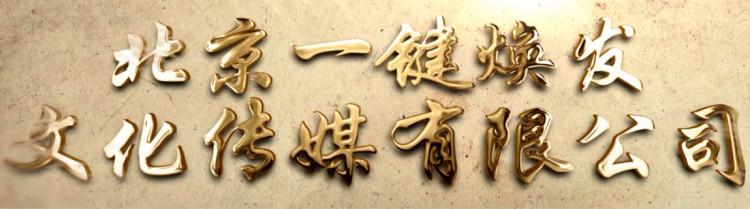 北京一键焕发
文化传媒有限公司